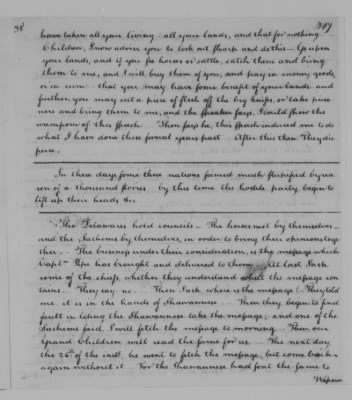 35 347
have taken all your living — all your lands, and that for nothing
Children, I now advise you to look out sharp and do this — Go upon
your lands, and if you see horses or cattle, catch them and bring
them to me, and I will buy them of you, and pay in money goods,
or in rum — that you may have some benefit of your lands and
further, you may cut a piece of flesh off the big knifs, or take priso-
ners and bring them to me, and the Speech says, I could show the
wampom of this speech — Then says he, this speech induced me to do
what I have done these several years past — After this then They dis
perse.
In these days some these nations seemed much stupified by rea
son of a thousand stories by this time the hostile party begin to
lift up their heads &c.
The Delawares hold councils — The heroes met by themselves —
and the Sachems by themselves, in order to bring their opinions toge
ther — The business under their consideration, is the message which
Captn Pipe has brought and delivered to them — At last I ask
some of the chiefs, whether they understand what the message con
tains — They say no — Then I ask where is the message? They told
me it is in the hands of Shawannese — Then they began to find
fault in leting the Shawannese take the message; and one of the
Sachems said, I will fetch the message to morning — Then our
Grand Children will read the same for us — The next day
the 26th of the inst. he went to fetch the message, but come back —
again without it — For the Shawannese had sent the same to